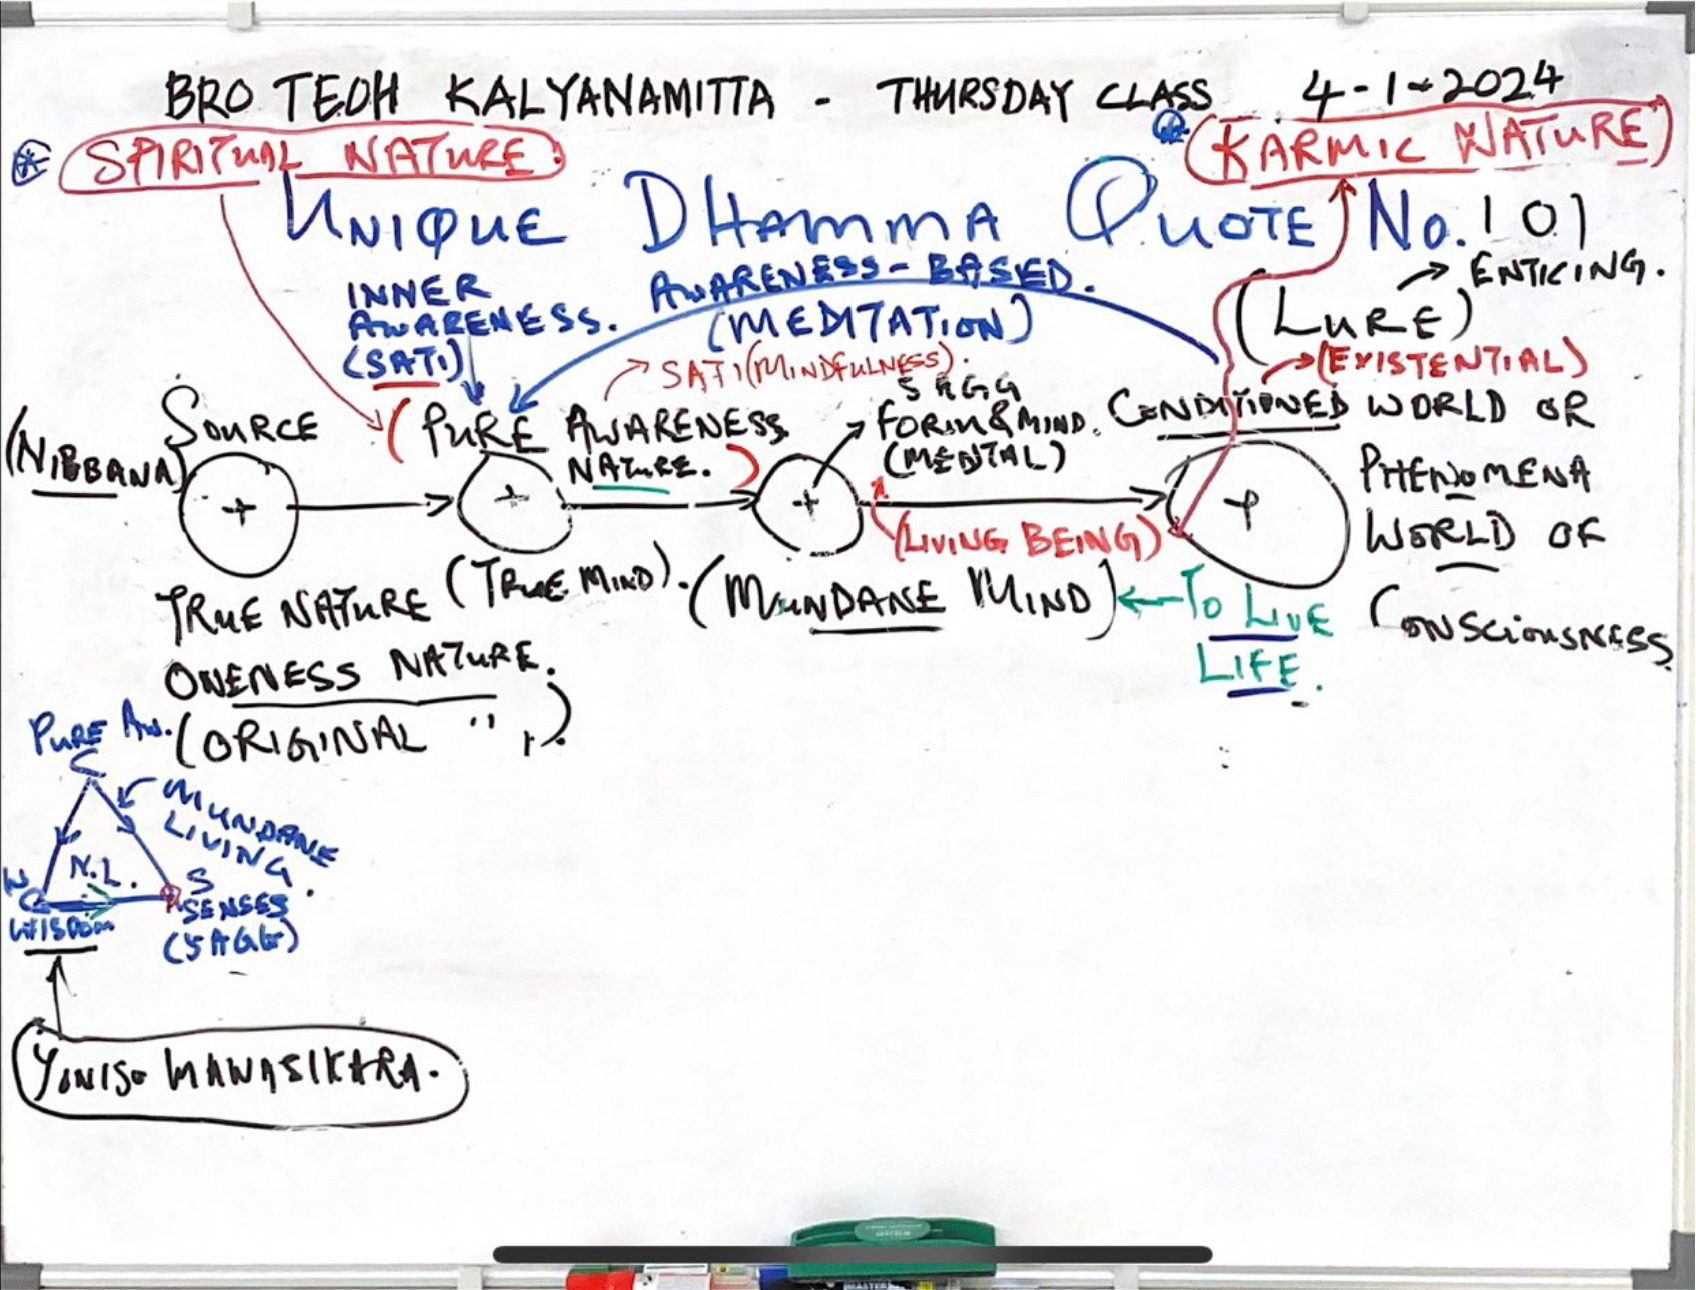 BRO TEOH KALYANAMITTA - THURSDAY CLASS 4-1-2024
SPIRITUAL NATURE
KARMIC NATURE
UNIQUE DHAMMA QUOTE No. 101
INNER AWARENESS.
(SATI)
AWARENESS-BASED.
(MEDITATION)
(LURE) → ENTICING.
→ (EXISTENTIAL)
→ SATI (MINDFULNESS).
(NIBBANA)
SOURCE
(PURE AWARENESS
NATURE.)
5 AGG
FORM & MIND.
(MENTAL)
CONDITIONED WORLD OR
PHENOMENA
WORLD OF
CONSCIOUSNESS
+
+
+
+
(LIVING BEING)
TRUE NATURE
ONENESS NATURE.
(ORIGINAL " ,).
(TRUE MIND).
(MUNDANE MIND)
← TO LIVE
LIFE.
PURE AW.
MUNDANE
LIVING.
N.L.
W
WISDOM
S
SENSES
(5 AGG)
YONISO MANASIKARA.